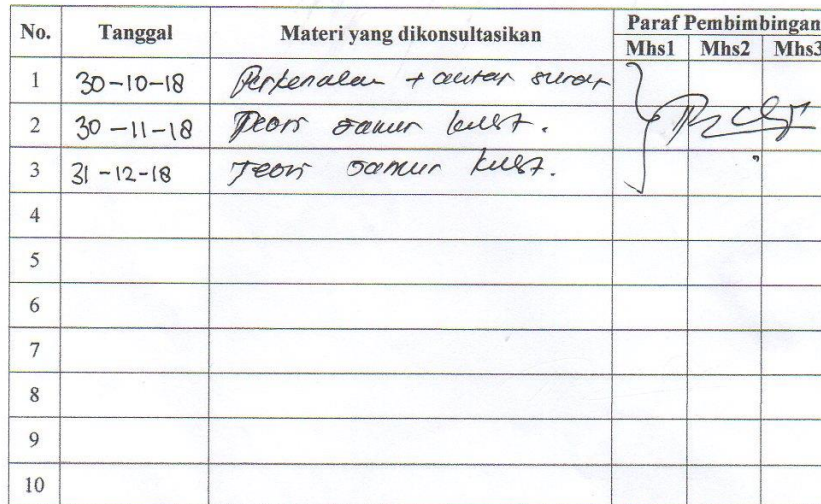 No. Tanggal Materi yang dikonsultasikan Paraf Pembimbingan
Mhs1 Mhs2 Mhs3
1 30-10-18 Perkenalan + antar surat
2 30-11-18 Teori jamur kulit.
3 31-12-18 Teori jamur kulit.
4
5
6
7
8
9
10